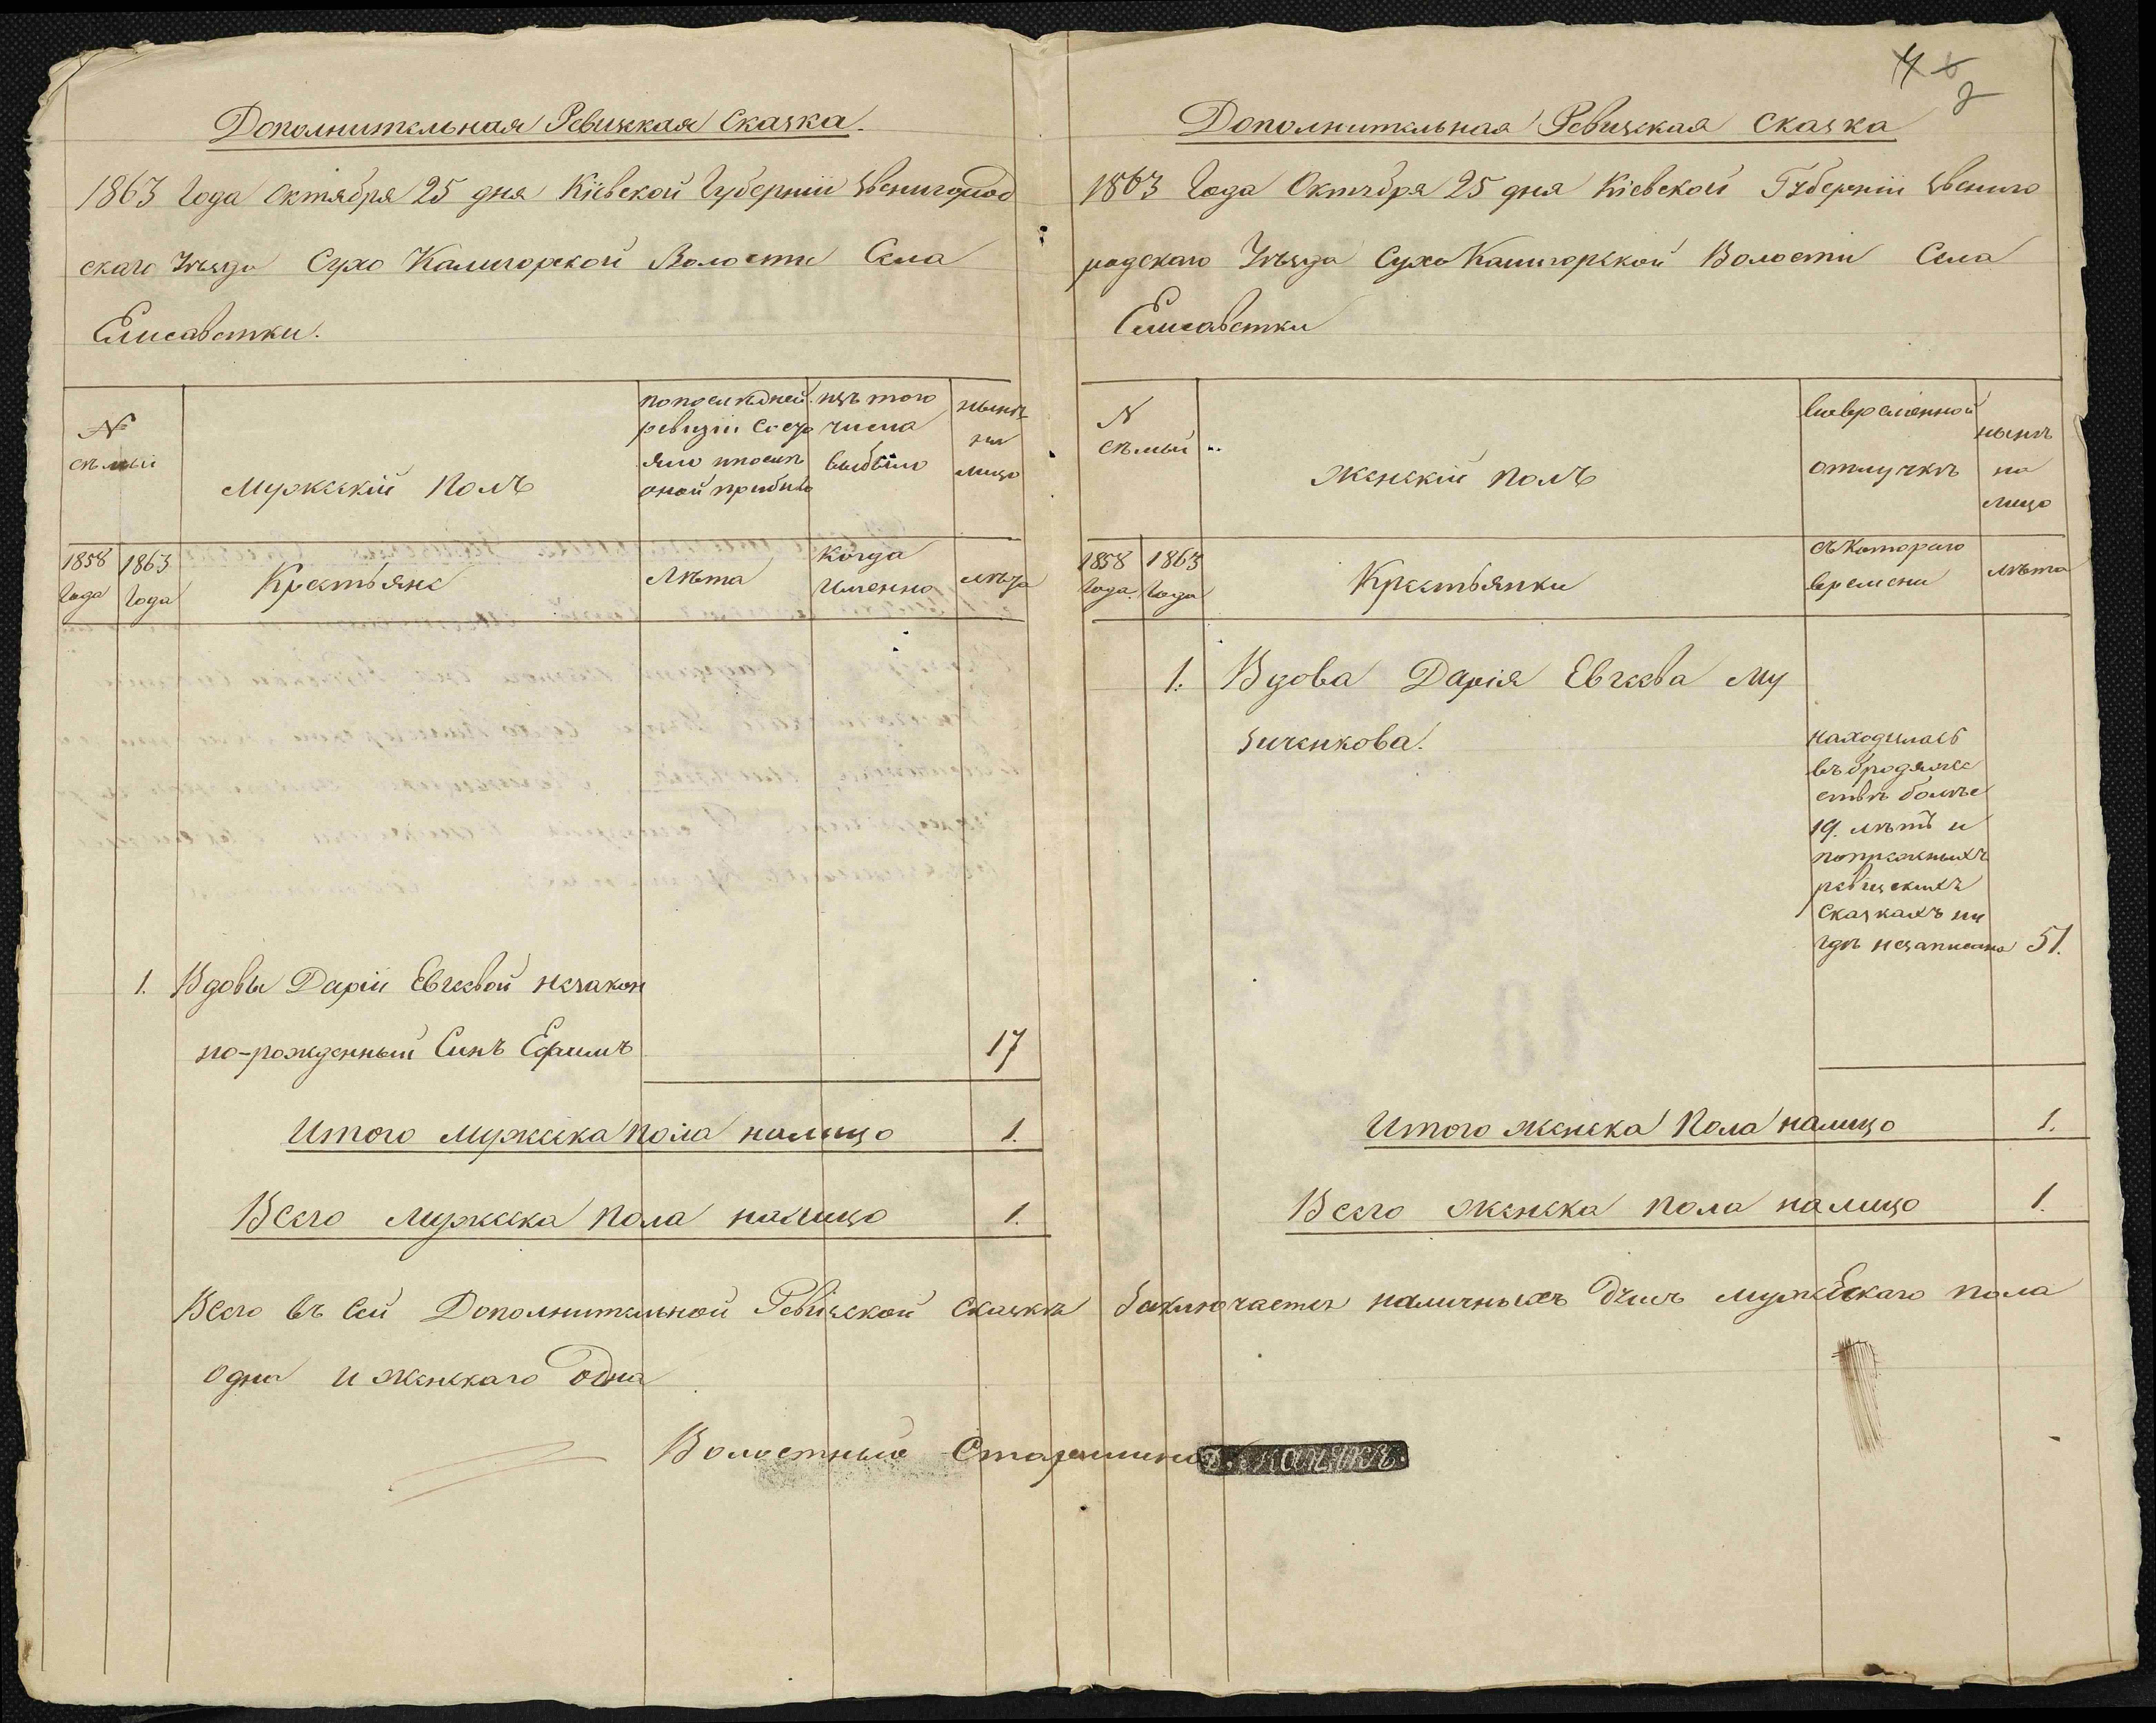 Дополнительная Ревизская Сказка.
1863 Года Октября 25 дня Кіевской Губерніи Звенигород
скаго Уѣзда Сухо Калигорской Волости Села
Елисаветки.
№
семьи
Мужескій Полъ
попослѣдней
ревизіи Состо
яло ипослѣ
оной прибыло
изъ того
числа
выбыло
нынѣ
на
лицо
1858
Года
1863
Года
Крестьяне
Лѣта
Когда
Именно
лѣта
1. Вдовы Даріи Евгеевой незакон
но-рожденный Сынъ Ефимъ 17
Итого Мужеска пола налицо 1.
Всего Мужеска пола налицо 1.
4 6
2
Дополнительная Ревизская Сказка
1863 Года Октября 25 дня Кіевской Губерніи Звениго
родскаго Уѣзда Сухо Калигорской Волости Села
Елисаветки
N
семьи
Женскій полъ
вовременной
отлучкѣ
нынѣ
на
лицо
1858
Года.
1863
Года
Крестьянки
съКотораго
времени
лѣта
1. Вдова Дарія Евгеева Му
зиченкова.
находилась
въбродяже
ствѣ болѣе
19. лѣтъ и
попрежнихъ
ревизскихъ
Сказкахъ ни
гдѣ незаписана 51.
Итого женска Пола налицо 1.
Всего женска пола налицо 1.
Всего въ сей Дополнительной Ревизской Сказкѣ Заключается наличныхъ Душъ мужескаго пола
одна и женскаго одна
Волостный Старшина